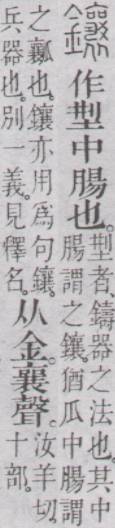 鑲 作型中腸也。型者、鑄器之法也。其中腸謂之鑲。猶瓜中腸謂
之瓤也。鑲亦用爲句鑲。兵器也。別一義。見釋名。从金。襄聲。汝羊切。十部。